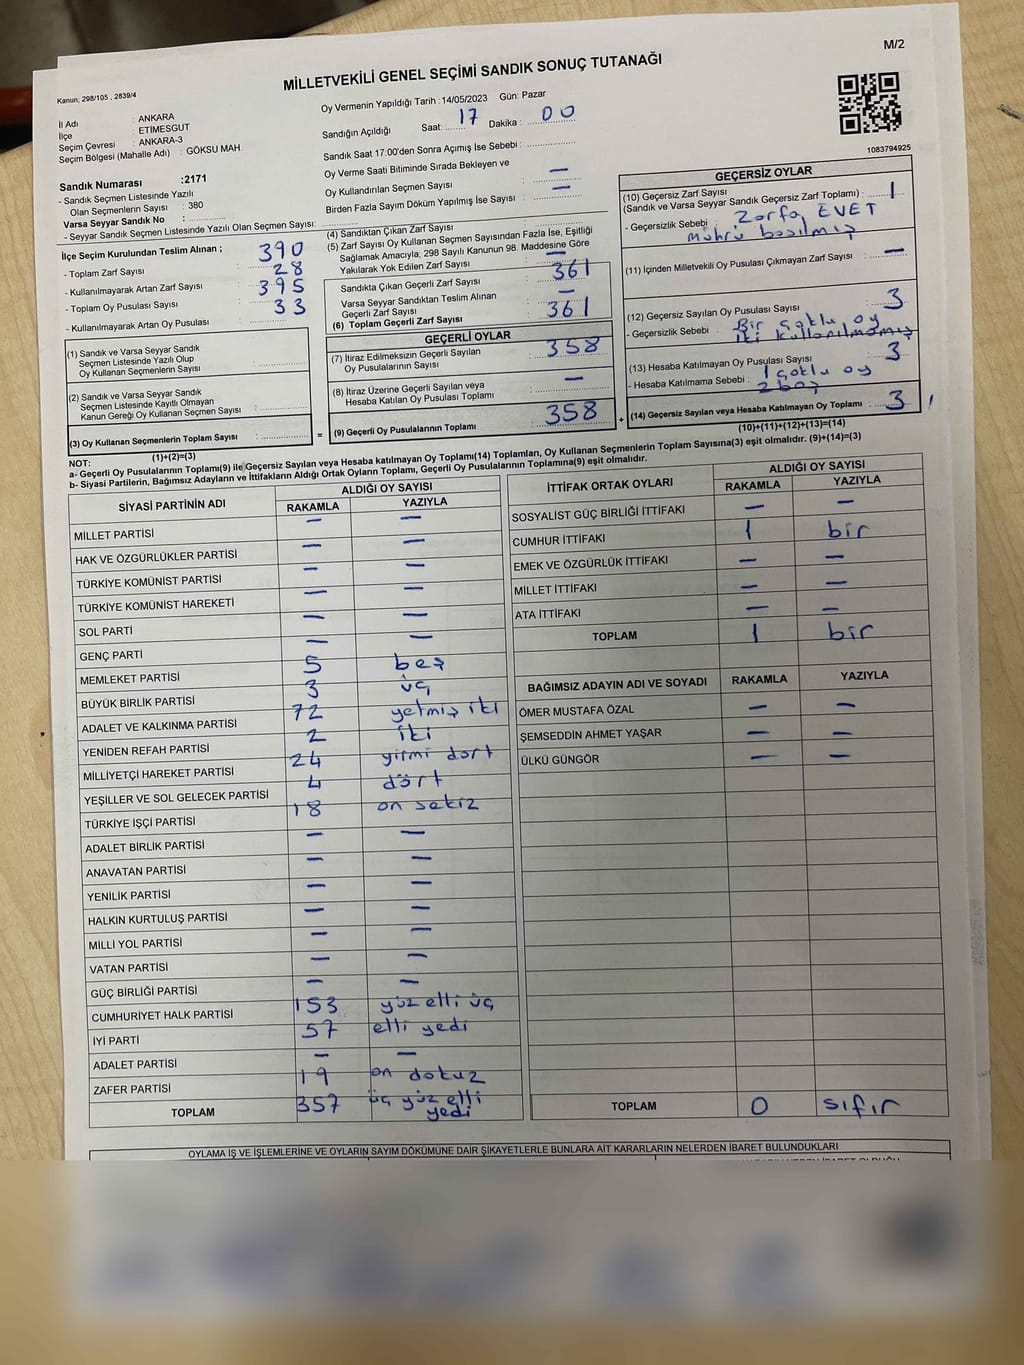 M/2
MİLLETVEKİLİ GENEL SEÇİMİ SANDIK SONUÇ TUTANAĞI
Kanun, 298/105 , 2839/4
İl Adı : ANKARA
İlçe : ETİMESGUT
Seçim Çevresi : ANKARA-3
Seçim Bölgesi (Mahalle Adı) : GÖKSU MAH
Sandık Numarası :2171
- Sandık Seçmen Listesinde Yazılı
Olan Seçmenlerin Sayısı : 380
Varsa Seyyar Sandık No :
- Seyyar Sandık Seçmen Listesinde Yazılı Olan Seçmen Sayısı:
İlçe Seçim Kurulundan Teslim Alınan ;
- Toplam Zarf Sayısı : 390
- Kullanılmayarak Artan Zarf Sayısı : 28
- Toplam Oy Pusulası Sayısı : 395
- Kullanılmayarak Artan Oy Pusulası : 33
(1) Sandık ve Varsa Seyyar Sandık
Seçmen Listesinde Yazılı Olup
Oy Kullanan Seçmenlerin Sayısı :
(2) Sandık ve Varsa Seyyar Sandık
Seçmen Listesinde Kayıtlı Olmayan
Kanun Gereği Oy Kullanan Seçmen Sayısı :
(3) Oy Kullanan Seçmenlerin Toplam Sayısı :
(1)+(2)=(3)
Oy Vermenin Yapıldığı Tarih :14/05/2023 Gün: Pazar
Sandığın Açıldığı Saat: 17 Dakika : 00
Sandık Saat 17:00'den Sonra Açımış İse Sebebi :
Oy Verme Saati Bitiminde Sırada Bekleyen ve
Oy Kullandırılan Seçmen Sayısı : —
Birden Fazla Sayım Döküm Yapılmış İse Sayısı : —
(4) Sandıktan Çıkan Zarf Sayısı :
(5) Zarf Sayısı Oy Kullanan Seçmen Sayısından Fazla İse, Eşitliği
Sağlamak Amacıyla; 298 Sayılı Kanunun 98. Maddesine Göre
Yakılarak Yok Edilen Zarf Sayısı : —
Sandıkta Çıkan Geçerli Zarf Sayısı : 361
Varsa Seyyar Sandıktan Teslim Alınan
Geçerli Zarf Sayısı : —
(6) Toplam Geçerli Zarf Sayısı : 361
GEÇERLİ OYLAR
(7) İtiraz Edilmeksizin Geçerli Sayılan
Oy Pusulalarının Sayısı : 358
(8) İtiraz Üzerine Geçerli Sayılan veya
Hesaba Katılan Oy Pusulası Toplamı : —
= (9) Geçerli Oy Pusulalarının Toplamı : 358 +
1083794925
GEÇERSİZ OYLAR
(10) Geçersiz Zarf Sayısı
(Sandık ve Varsa Seyyar Sandık Geçersiz Zarf Toplamı) : 1
- Geçersizlik Sebebi : Zarfa EVET
Mührü basılmış
(11) İçinden Milletvekili Oy Pusulası Çıkmayan Zarf Sayısı : —
(12) Geçersiz Sayılan Oy Pusulası Sayısı : 3
- Geçersizlik Sebebi : Bir çoklu oy
iki kullanılmamış
(13) Hesaba Katılmayan Oy Pusulası Sayısı : 3
- Hesaba Katılmama Sebebi : 1 çoklu oy
2 boş
(14) Geçersiz Sayılan veya Hesaba Katılmayan Oy Toplamı : 3
(10)+(11)+(12)+(13)=(14)
NOT:
a- Geçerli Oy Pusulalarının Toplamı(9) ile Geçersiz Sayılan veya Hesaba katılmayan Oy Toplamı(14) Toplamları, Oy Kullanan Seçmenlerin Toplam Sayısına(3) eşit olmalıdır. (9)+(14)=(3)
b- Siyasi Partilerin, Bağımsız Adayların ve İttifakların Aldığı Ortak Oyların Toplamı, Geçerli Oy Pusulalarının Toplamına(9) eşit olmalıdır.
SİYASİ PARTİNİN ADI ALDIĞI OY SAYISI
RAKAMLA YAZIYLA
MİLLET PARTİSİ — —
HAK VE ÖZGÜRLÜKLER PARTİSİ — —
TÜRKİYE KOMÜNİST PARTİSİ — —
TÜRKİYE KOMÜNİST HAREKETİ — —
SOL PARTİ — —
GENÇ PARTİ — —
MEMLEKET PARTİSİ 5 beş
BÜYÜK BİRLİK PARTİSİ 3 üç
ADALET VE KALKINMA PARTİSİ 72 yetmiş iki
YENİDEN REFAH PARTİSİ 2 iki
MİLLİYETÇİ HAREKET PARTİSİ 24 yirmi dört
YEŞİLLER VE SOL GELECEK PARTİSİ 4 dört
TÜRKİYE İŞÇİ PARTİSİ 18 on sekiz
ADALET BİRLİK PARTİSİ — —
ANAVATAN PARTİSİ — —
YENİLİK PARTİSİ — —
HALKIN KURTULUŞ PARTİSİ — —
MİLLİ YOL PARTİSİ — —
VATAN PARTİSİ — —
GÜÇ BİRLİĞİ PARTİSİ — —
CUMHURİYET HALK PARTİSİ 153 yüz elli üç
İYİ PARTİ 57 elli yedi
ADALET PARTİSİ — —
ZAFER PARTİSİ 19 on dokuz
TOPLAM 357 üç yüz elli
yedi
İTTİFAK ORTAK OYLARI ALDIĞI OY SAYISI
RAKAMLA YAZIYLA
SOSYALİST GÜÇ BİRLİĞİ İTTİFAKI — —
CUMHUR İTTİFAKI 1 bir
EMEK VE ÖZGÜRLÜK İTTİFAKI — —
MİLLET İTTİFAKI — —
ATA İTTİFAKI — —
TOPLAM 1 bir
BAĞIMSIZ ADAYIN ADI VE SOYADI RAKAMLA YAZIYLA
ÖMER MUSTAFA ÖZAL — —
ŞEMSEDDİN AHMET YAŞAR — —
ÜLKÜ GÜNGÖR — —
TOPLAM 0 sıfır
OYLAMA İŞ VE İŞLEMLERİNE VE OYLARIN SAYIM DÖKÜMÜNE DAİR ŞİKAYETLERLE BUNLARA AİT KARARLARIN NELERDEN İBARET BULUNDUKLARI